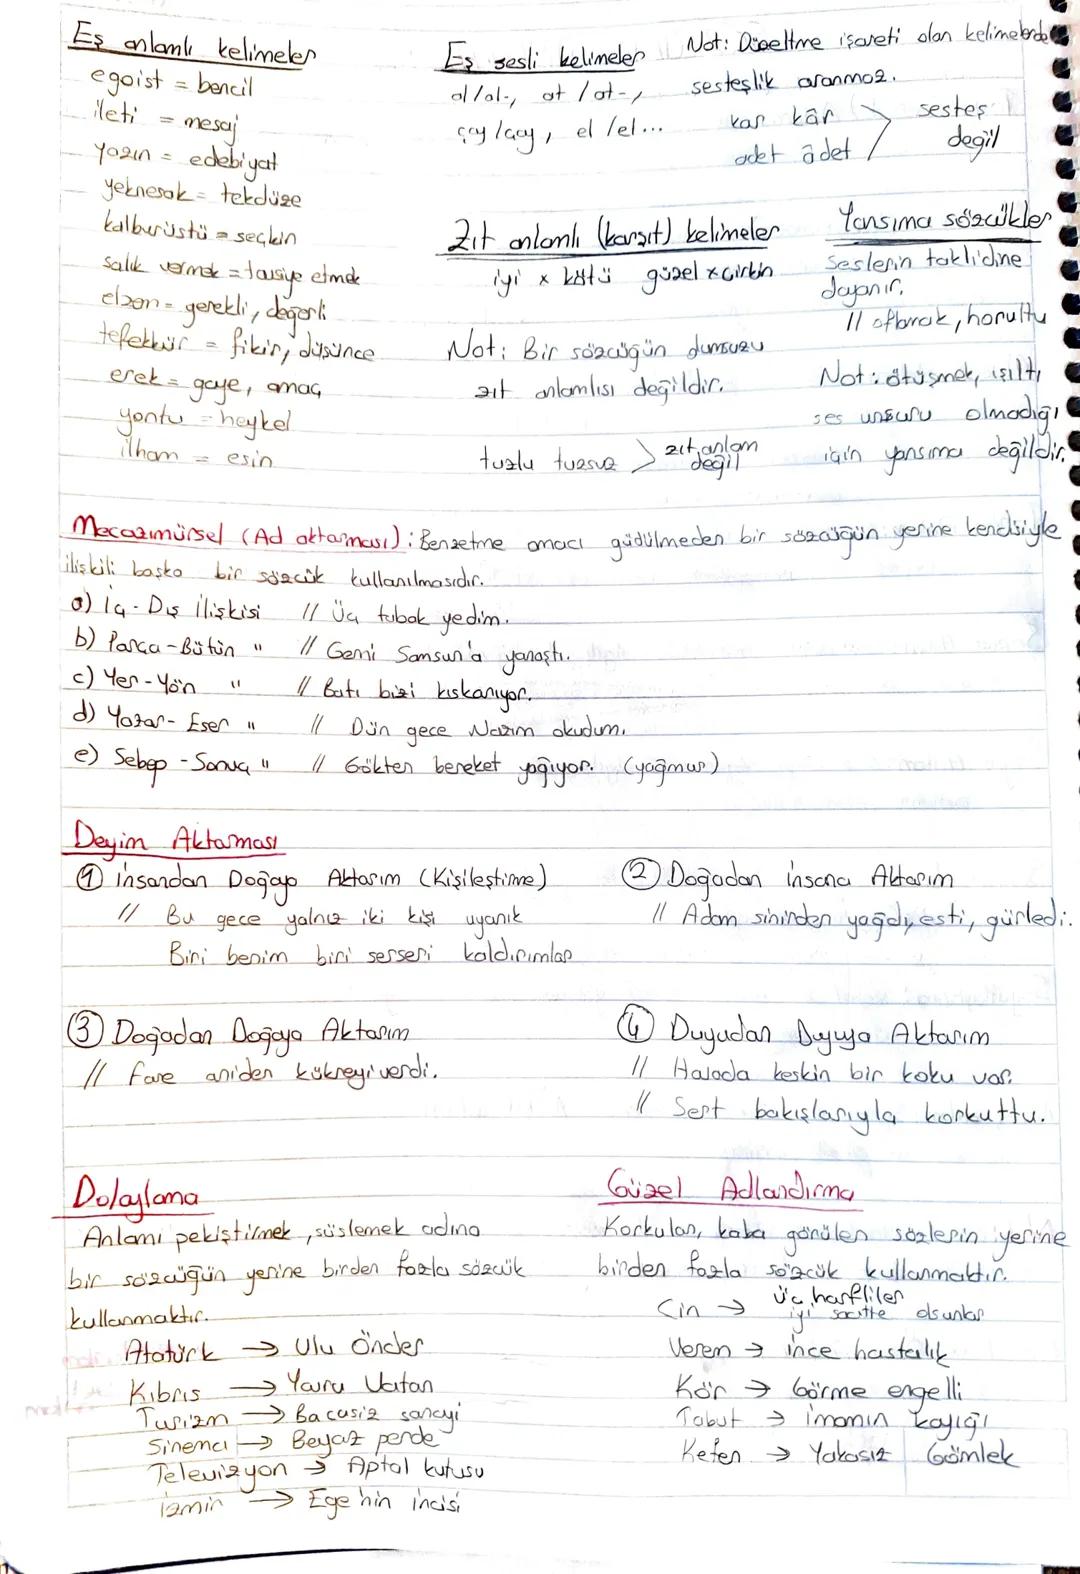 Eş anlamlı kelimeler
egoist = bencil
ileti = mesaj
yazın = edebiyat
yeknesak = tekdüze
kalburüstü = seçkin
salık vermek = tavsiye etmek
elzem = gerekli, değerli
tefekkür = fikir, düşünce
erek = gaye, amaç
yontu = heykel
ilham = esin
Eş sesli kelimeler
al/al-, at/at-,
çay/çay, el/el...
Not: Düzeltme işareti olan kelimelerde
sesteşlik aranmaz.
kar kâr
adet âdet
sesteş
değil
Zıt anlamlı (karşıt) kelimeler
iyi x kötü güzel x çirkin
Not: Bir sözcüğün olumsuzu
zıt anlamlısı değildir.
tuzlu tuzsuz > zıt anlam
değil
Yansıma sözcükler
Seslerin taklidine
dayanır.
// oflamak, horultu
Not: ötüşmek, ışıltı
ses unsuru olmadığı
için yansıma değildir.
Mecazımürsel (Ad aktarması): Benzetme amacı güdülmeden bir sözcüğün yerine kendisiyle
ilişkili başka bir sözcük kullanılmasıdır.
a) İç - Dış ilişkisi // Üç tabak yedim.
b) Parça - Bütün " // Gemi Samsun'a yanaştı.
c) Yer - Yön " // Batı bizi kıskanıyor.
d) Yazar - Eser " // Dün gece Nazım okudum.
e) Sebep - Sonuç " // Gökten bereket yağıyor. (yağmur)
Deyim Aktarması
① İnsandan Doğaya Aktarım (Kişileştirme)
// Bu gece yalnız iki kişi uyanık
Biri benim biri serseri kaldırımlar
② Doğadan insana Aktarım
// Adam sininden yağdı, esti, gürledi.
③ Doğadan Doğaya Aktarım
// Fare aniden kükreyiverdi.
④ Duyudan Duyuya Aktarım
// Havada keskin bir koku var.
// Sert bakışlarıyla korkuttu.
Dolaylama
Anlamı pekiştirmek, süslemek adına
bir sözcüğün yerine birden fazla sözcük
kullanmaktır.
Atatürk → Ulu Önder
Kıbrıs → Yavru Vatan
Turizm → Bacasız sanayi
Sinema → Beyaz perde
Televizyon → Aptal kutusu
İzmir → Ege'nin incisi
Güzel Adlandırma
Korkulan, kaba görülen sözlerin yerine
birden fazla sözcük kullanmaktır.
Cin → Üç harfliler
iyi saatte olsunlar
Verem → ince hastalık
Kör → Görme engelli
Tabut → imamın kayığı
Kefen → Yakasız Gömlek